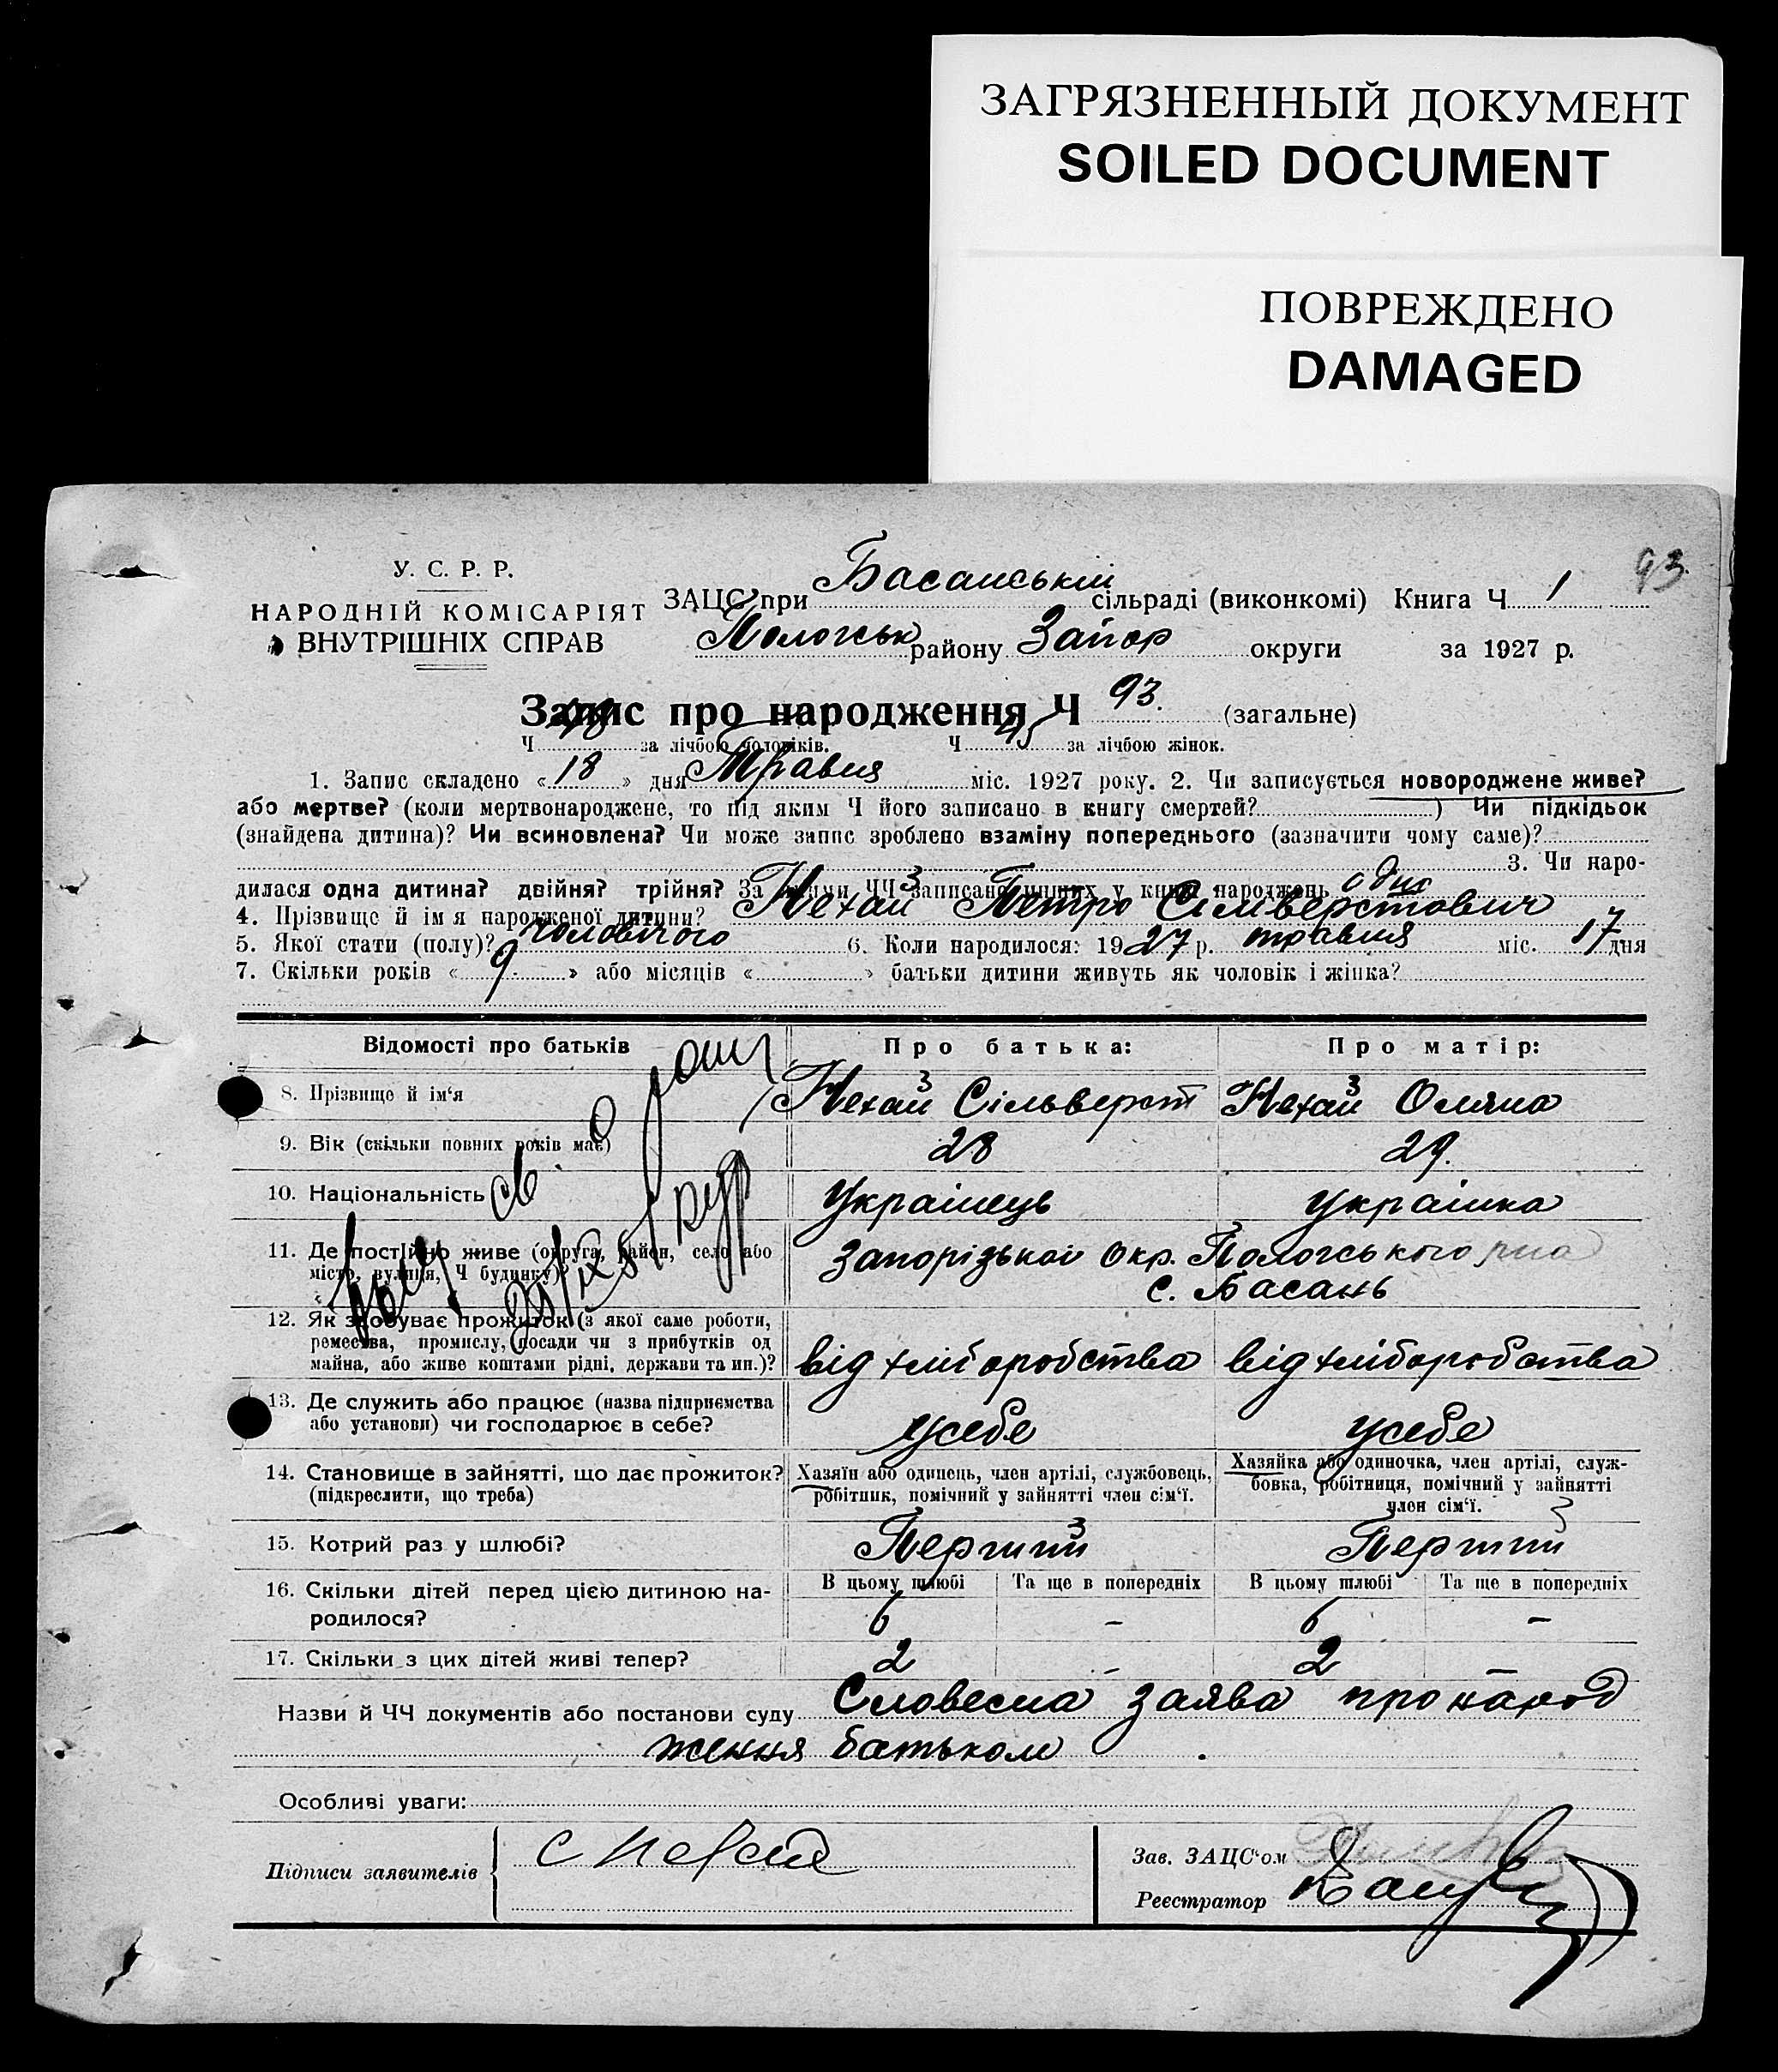 ЗАГРЯЗНЕННЫЙ ДОКУМЕНТ
SOILED DOCUMENT
ПОВРЕЖДЕНО
DAMAGED
93
У. С. Р. Р.
НАРОДНІЙ КОМІСАРІЯТ
ВНУТРІШНІХ СПРАВ
ЗАЦС при Басанській сільраді (виконкомі) Книга Ч 1
Пологськ району Запор округи за 1927 р.
Запис про народження Ч 93. (загальне)
Ч 48 за лічбою чоловіків. Ч 45 за лічбою жінок.
1. Запис складено « 18 » дня Травня міс. 1927 року. 2. Чи записується новороджене живе?
або мертве? (коли мертвонароджене, то під яким Ч його записано в книгу смертей? ) Чи підкідьок
(знайдена дитина)? Чи всиновлена? Чи може запис зроблено взаміну попереднього (зазначити чому саме)?
3. Чи наро-
дилася одна дитина? двійня? трійня? За якими ЧЧ записано инших у книгу народжень одно
4. Прізвище й ім'я народженої дитини? Нехай Петро Сільверстович
5. Якої стати (полу)? чоловічого 6. Коли народилося: 1927 р. травня міс. 17 дня
7. Скільки років « 9 » або місяців « » батьки дитини живуть як чоловік і жінка?
Відомості про батьків Про батька: Про матір:
8. Прізвище й ім'я Нехай Сільверст Нехай Оляна
9. Вік (скільки повних років має) 28 29.
10. Національність Українець Українка
11. Де постійно живе (округа, район, село або Запорізької Окр. Пологського р-на
місто, вулиця, Ч будинку)? с. Басань
12. Як здобуває прожиток (з якої саме роботи,
ремества, промислу, посади чи з прибутків од
майна, або живе коштами рідні, держави та ин.)? від хліборобства від хліборобства
13. Де служить або працює (назва підприємства
або установи) чи господарює в себе? усебе усебе
14. Становище в зайнятті, що дає прожиток? Хазяїн або одинець, член артілі, службовець, Хазяйка або одиночка, член артілі, служ-
(підкреслити, що треба) робітник, помічний у зайнятті член сім'ї. бовка, робітниця, помічний у зайнятті
член сім'ї.
15. Котрий раз у шлюбі? Перший Перший
16. Скільки дітей перед цією дитиною на- В цьому шлюбі Та ще в попередніх В цьому шлюбі Та ще в попередніх
родилося? 6 - 6 -
17. Скільки з цих дітей живі тепер? 2 - 2 -
Назви й ЧЧ документів або постанови суду Словесна заява про народ
ження батьком .
Особливі уваги:
Підписи заявителів С Нехай Зав. ЗАЦС'ом
Реєстратор